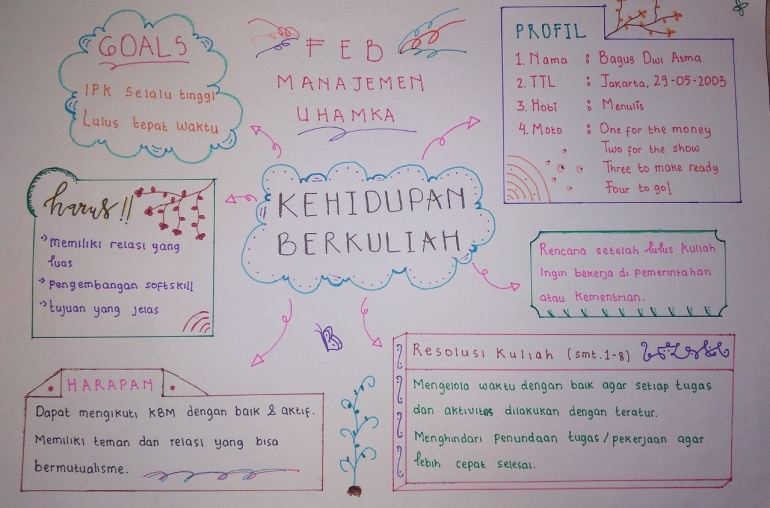 GOALS
IPK selalu tinggi
Lulus tepat waktu
FEB
MANAJEMEN
UHAMKA
PROFIL
1. Nama : Bagus Dwi Atma
2. TTL : Jakarta, 29-05-2003
3. Hobi : Menulis
4. Moto : One for the money
Two for the show
Three to make ready
Four to go!
harus!!
memiliki relasi yang
luas
pengembangan softskill
tujuan yang jelas
KEHIDUPAN
BERKULIAH
Rencana setelah lulus kuliah
Ingin bekerja di pemerintahan
atau kementrian.
HARAPAN
Dapat mengikuti KBM dengan baik & aktif.
Memiliki teman dan relasi yang bisa
bermutualisme.
Resolusi Kuliah (smt.1-8)
Mengelola waktu dengan baik agar setiap tugas
dan aktivitas dilakukan dengan teratur.
Menghindari penundaan tugas/pekerjaan agar
lebih cepat selesai.